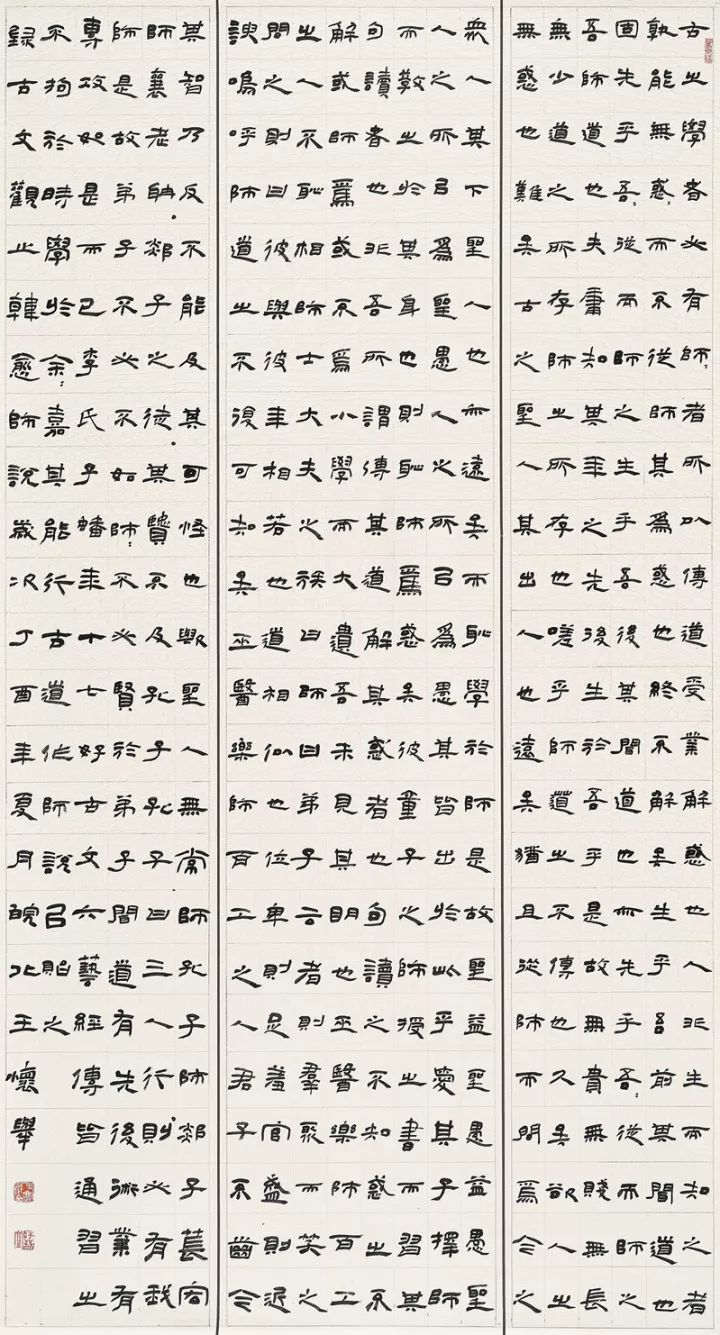 古之學者必有師：者所以傳道受業解惑也人非生而知之者
孰能無惑：而不從師其爲惑也終不解矣生乎吾前其聞道也
固先乎吾：從而師之生乎吾後其聞道也亦先乎吾：從而師之
吾師道也夫庸知其年之先後生於吾乎是故無貴無賤無長
無少道之所存師之所存也嗟乎師道之不傳也久矣欲人之
無惑也難矣古之聖人其出人也遠矣猶且從師而問焉今之
衆人其下聖人也亦遠矣而恥學於師是故聖益聖愚益愚聖
人之所以爲聖愚人之所以爲愚其皆出於此乎愛其子擇師
而教之於其身也則恥師焉惑矣彼童子之師授之書而習其
句讀者也非吾所謂傳其道解其惑者也句讀之不知惑之不
解或師焉或不焉小學而大遺吾未見其明也巫醫樂師百工
之人不恥相師士大夫之族曰師曰弟子云者則羣聚而笑之
問之則曰彼與彼年相若也道相似也位卑則足羞官盛則近
諛嗚呼師道之不復可知矣巫醫樂師百工之人君子不齒今
其智乃反不能及其可怪也歟聖人無常師孔子師郯子萇宏
師襄老聃。郯子之徒。其賢不及孔子孔子曰三人行則必有我
師是故弟子不必不如師：不必賢於弟子聞道有先後術業有
專攻如是而已李氏子蟠年十七好古文六藝經傳皆通習之
不拘於時學於余：嘉其能行古道作師說以貽之
録古文觀止韓愈師說歲次丁酉年夏月皖北王懷舉